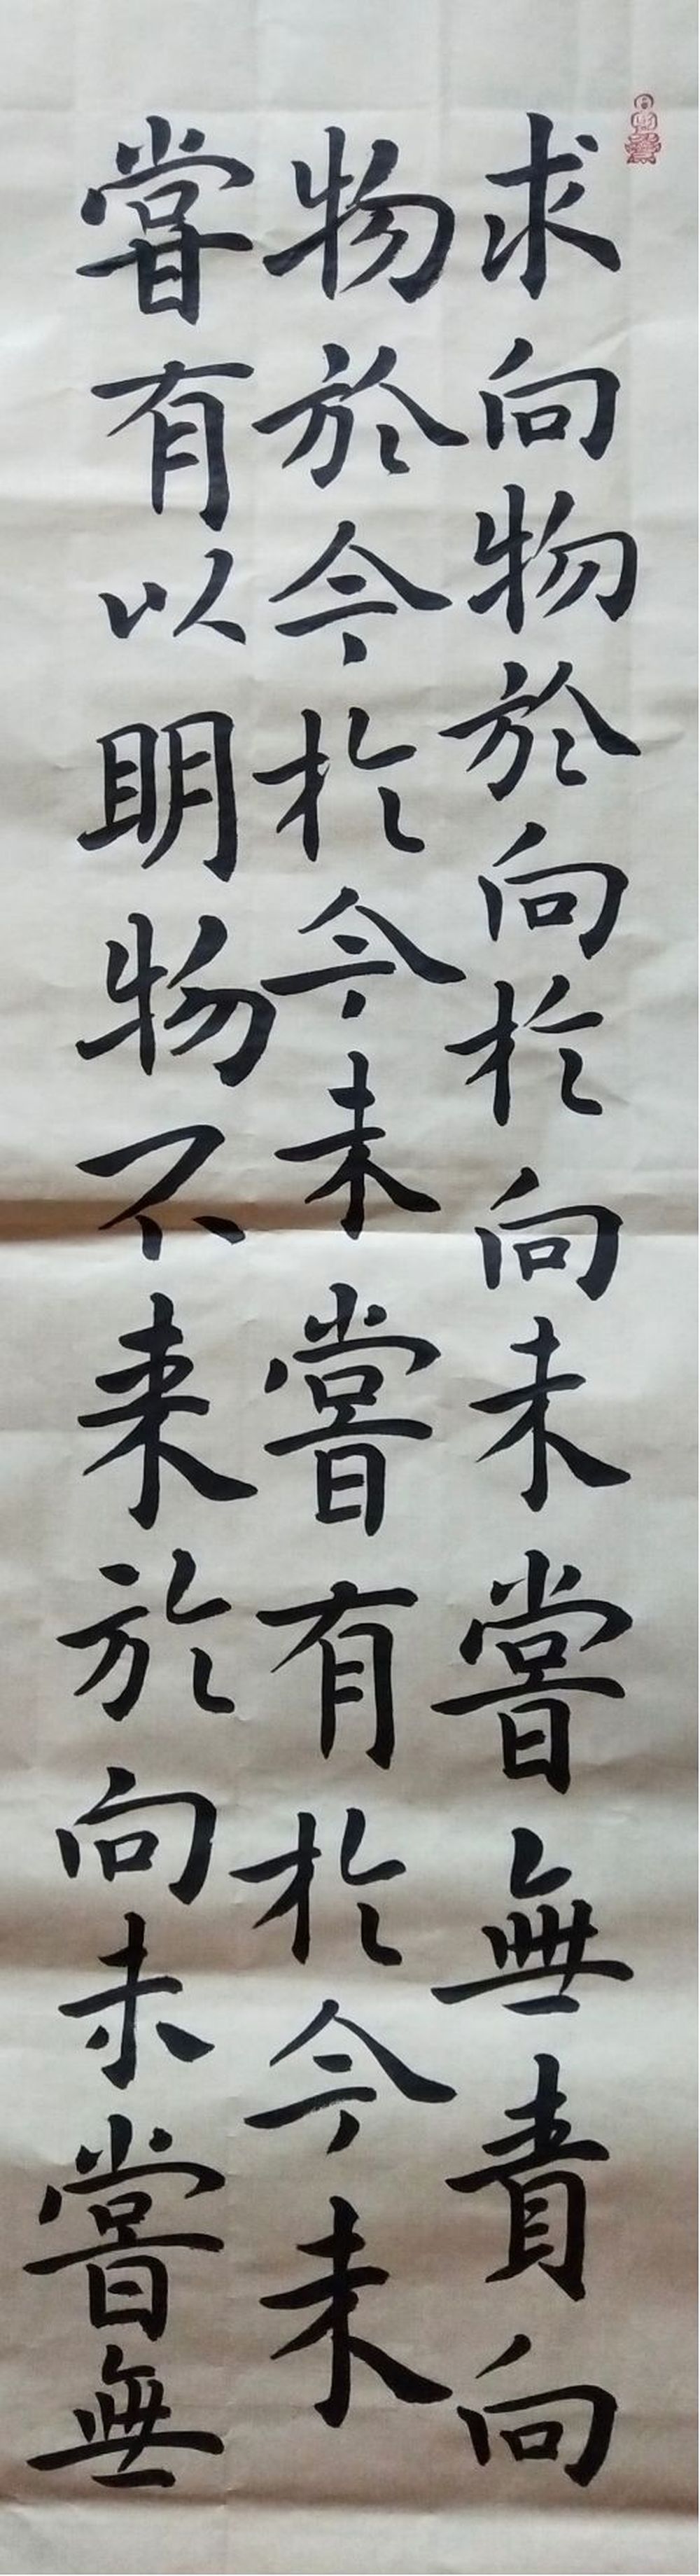 求向物於向於向未嘗無責向
物於今於今未嘗有於今未
嘗有以明物不来於向未嘗無